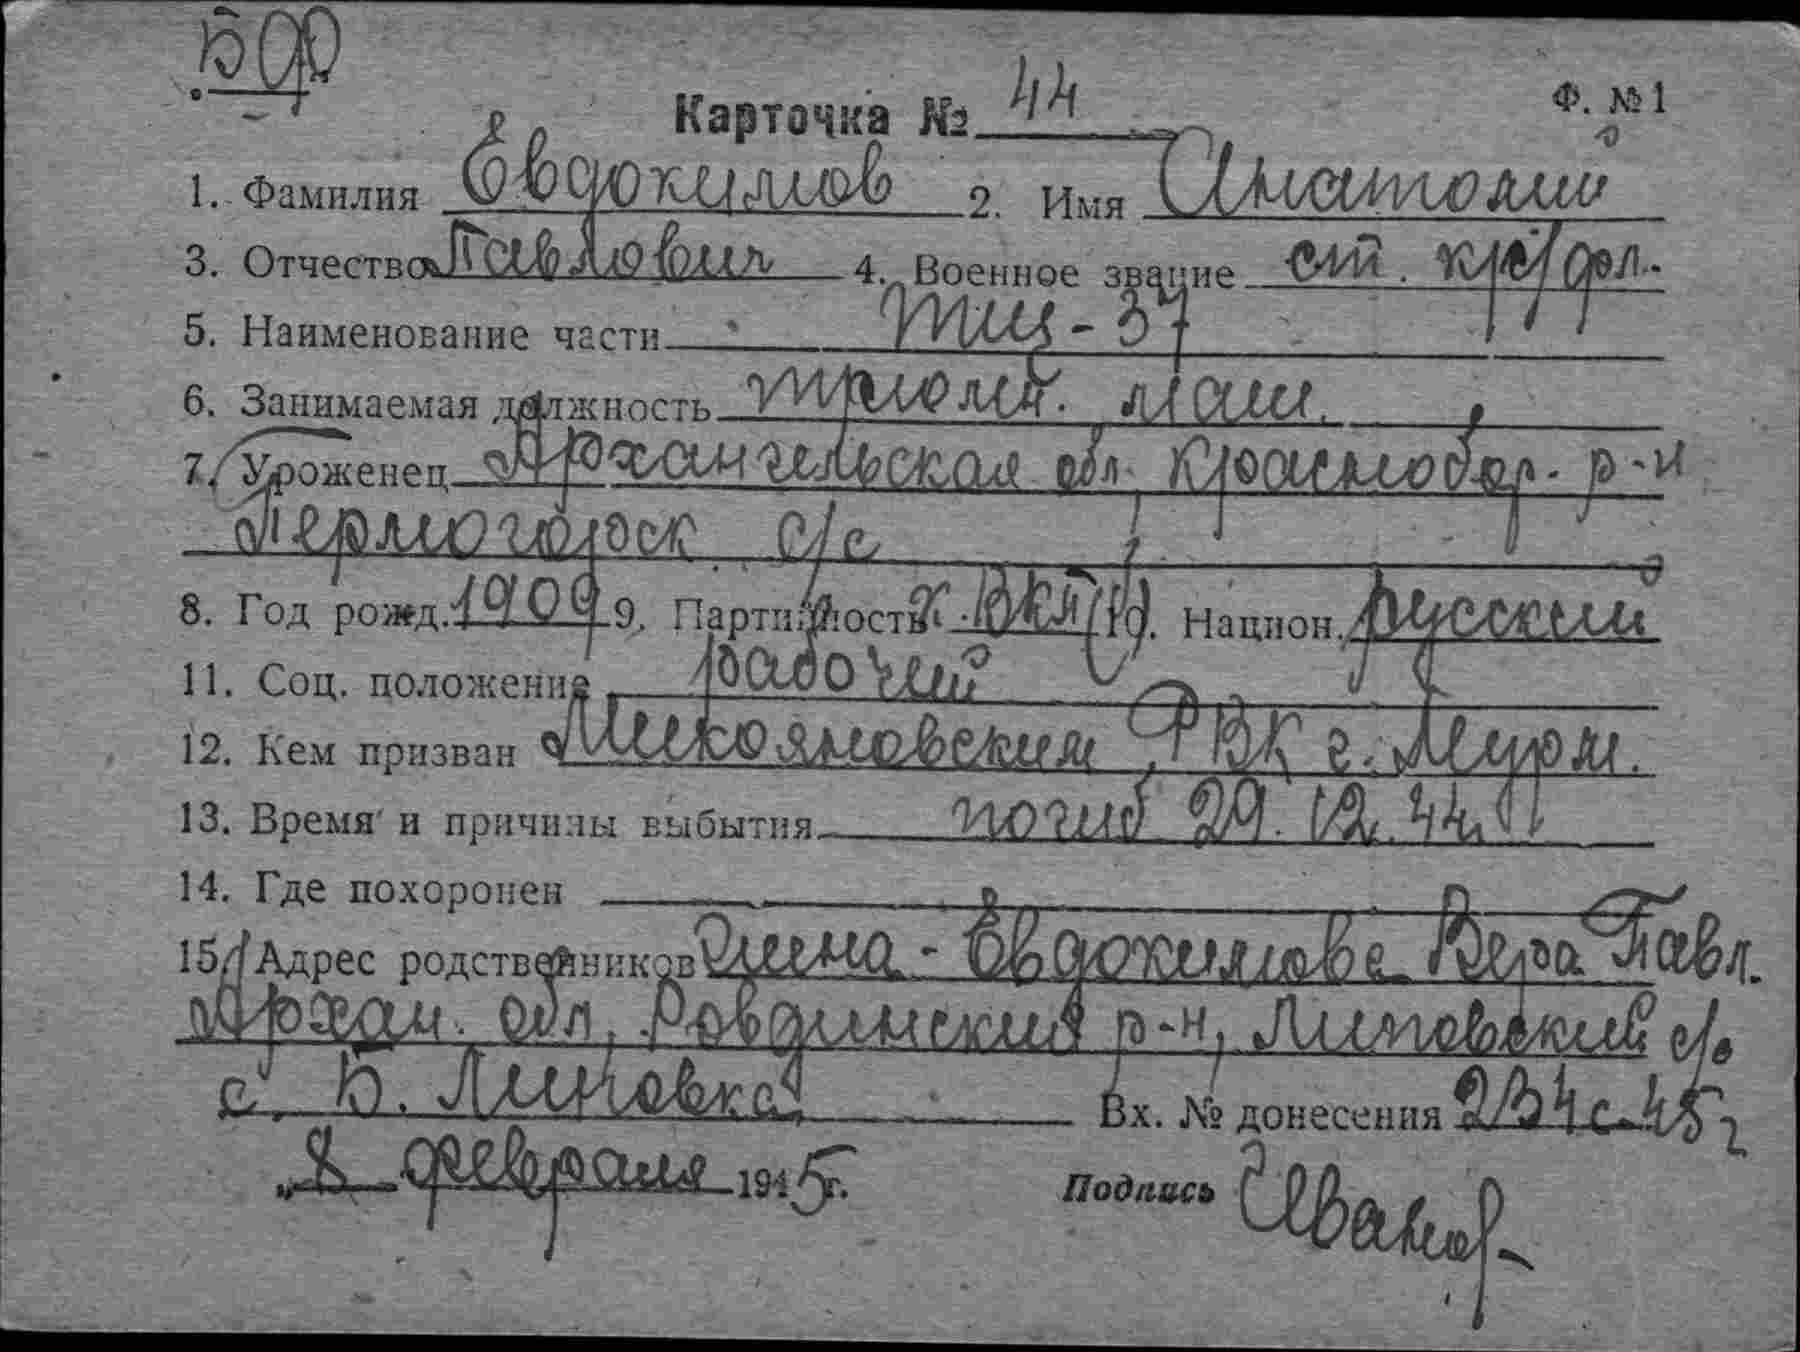 Карточка № 44
Ф. № 1
1. Фамилия Евдокимов 2. Имя Анатолий
3. Отчество Павлович 4. Военное звание ст. кр/фл.
5. Наименование части ТЩ-37
6. Занимаемая должность трюмн. маш.
7. Уроженец Архангельская обл, Краснобор. р-н
Пермогорск с/с
8. Год рожд. 1909 9. Партийность ВКП(б) 10. Национ. русский
11. Соц. положение рабочий
12. Кем призван Микояновским РВК г. Мурм.
13. Время и причины выбытия погиб 29.12.44г
14. Где похоронен
15. Адрес родственников жена - Евдокимова Вера Павл.
Архан. обл, Ровдинский р-н, Липовский с/с
с. Б. Липовка,
Вх. № донесения 234с-45г
„8 февраля 1945г.
Подпись Иванов